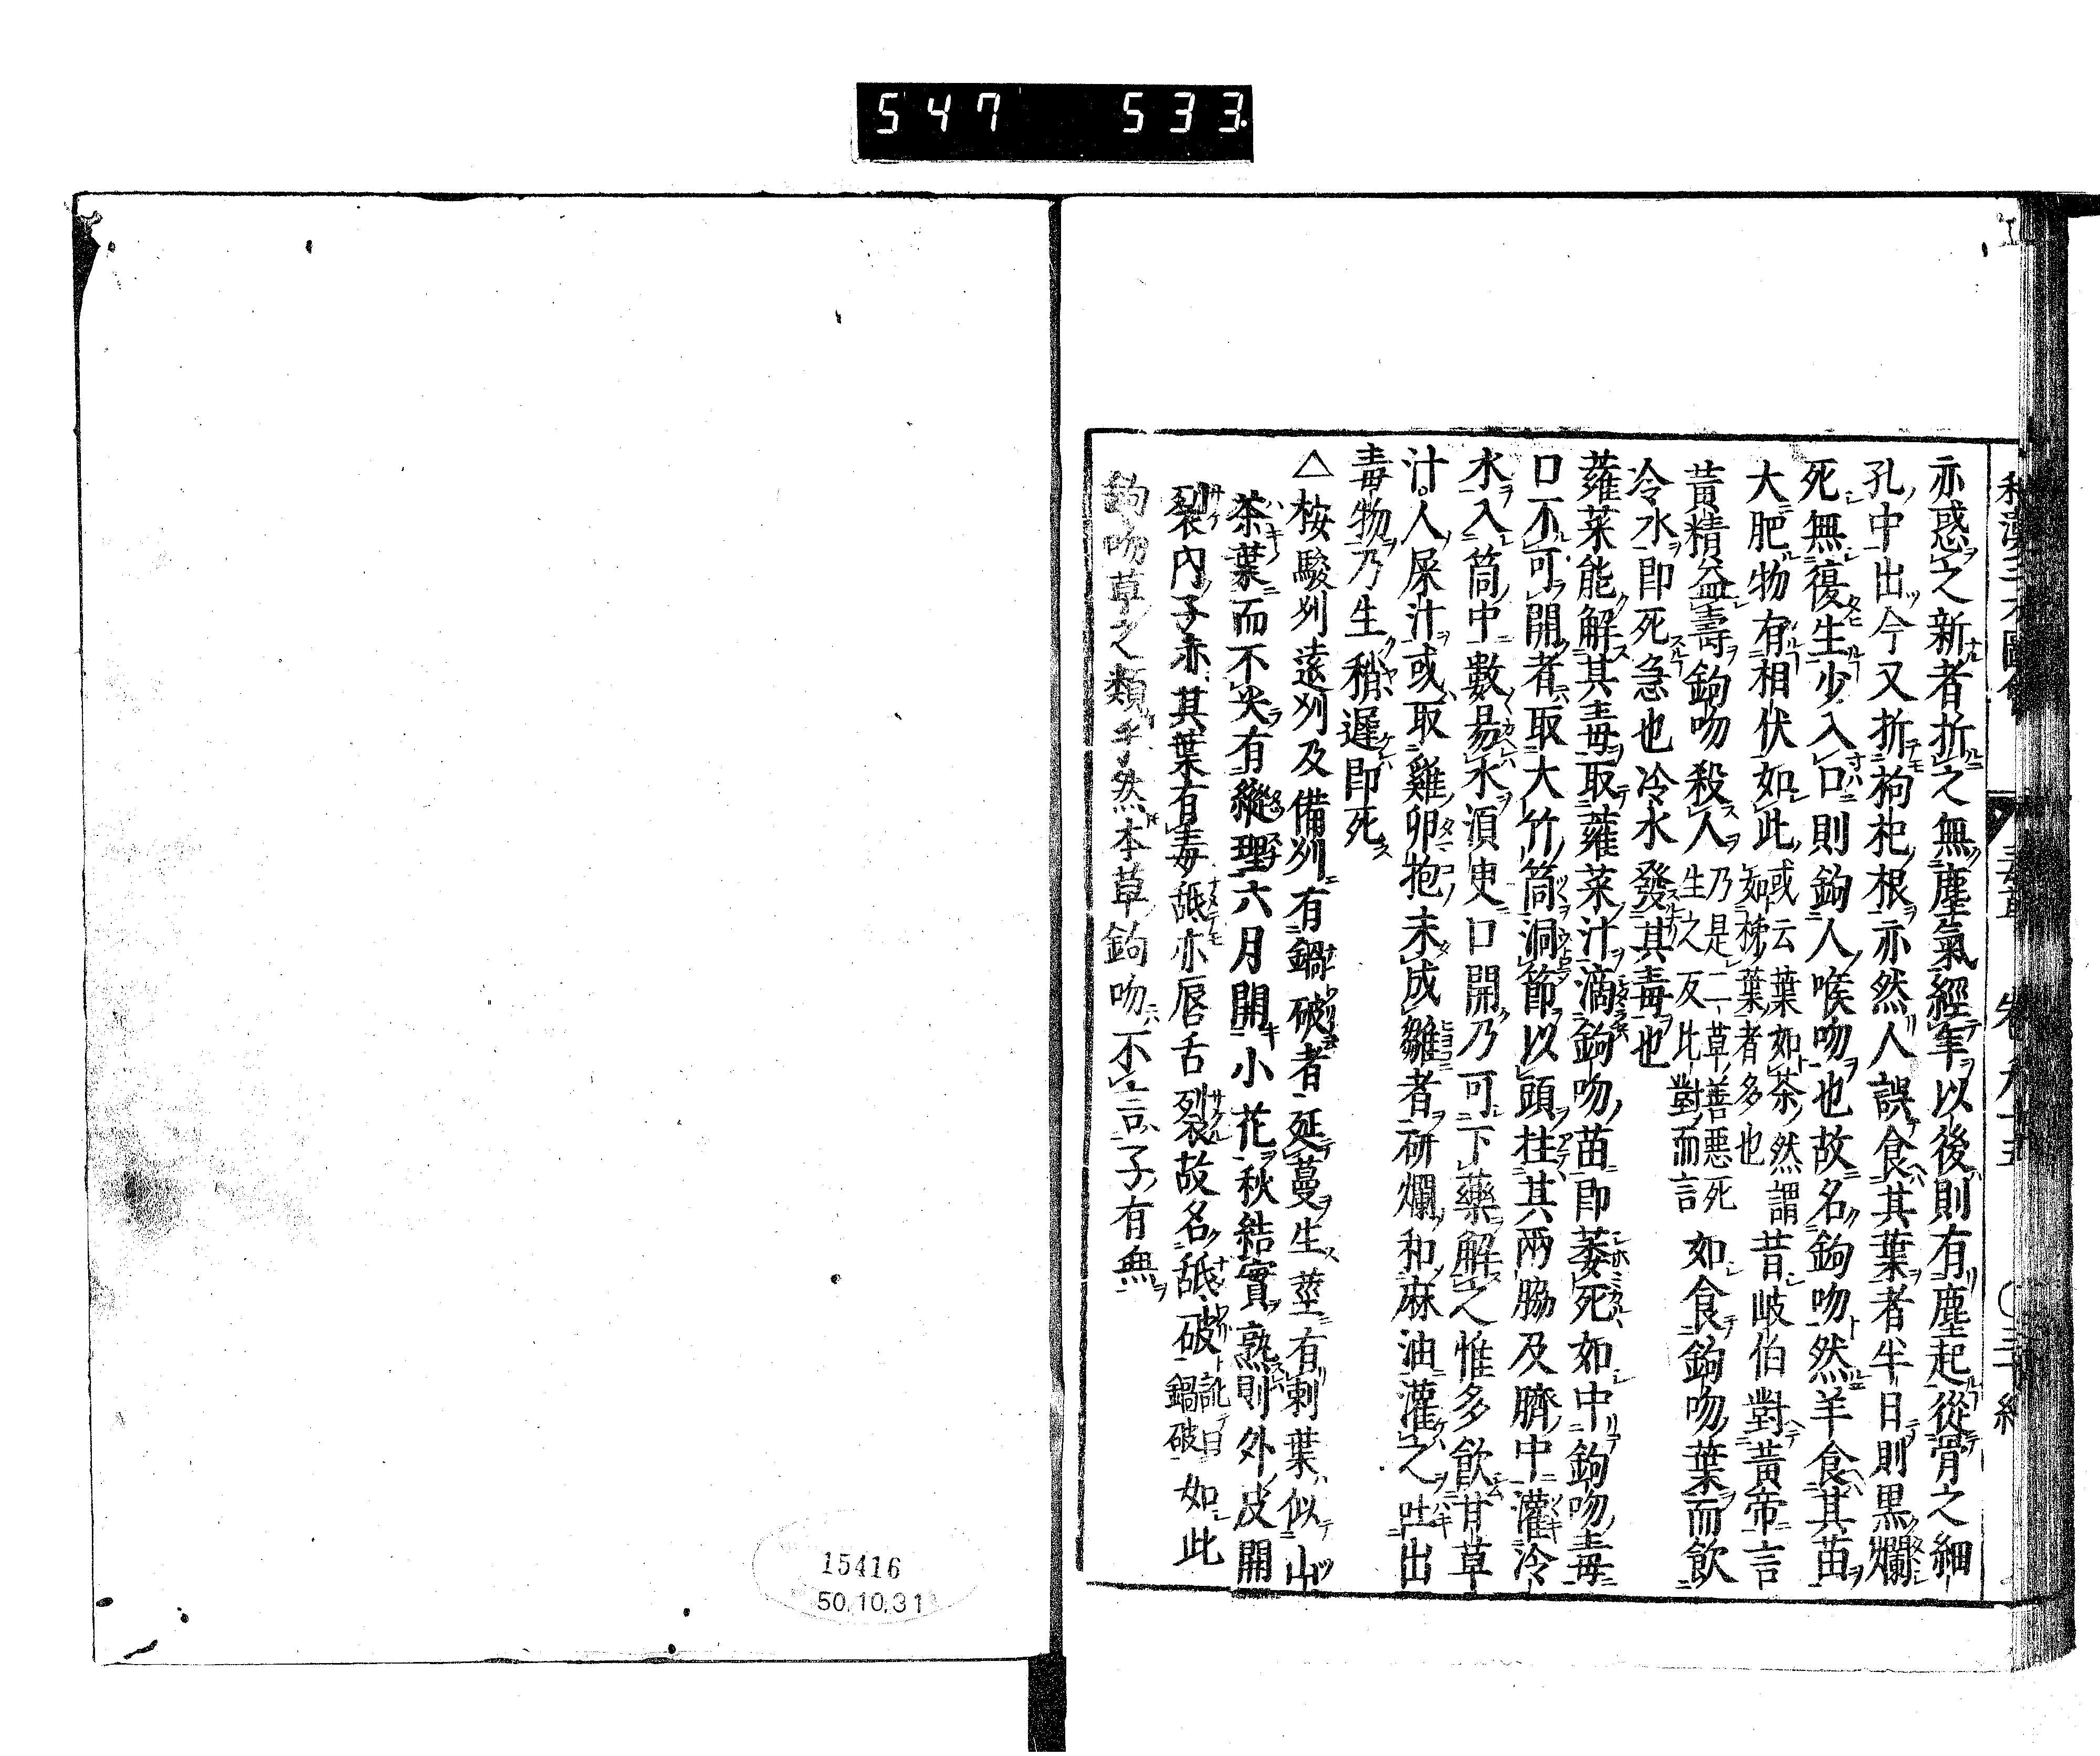 547 533
亦惑之新者折之無塵氣經年以後則有塵起從骨之細
孔中出今又折枸杞根亦然人誤食其葉者半日則黒爛
死無復生少入口則鉤人喉吻也故名鉤吻然羊食其苗
大肥物有相伏如此或云葉如茶然謂如柿葉者多也昔岐伯對黃帝言
黃精益壽鉤吻殺人乃是二草善惡死生之反此對而言如食鉤吻葉而飲
冷水即死急也冷水發其毒也
蕹菜能解其毒取蕹菜汁滴鉤吻苗即萎死如中鉤吻毒
口不可開者取大竹筒洞節以頭拄其兩脇及臍中灌冷
水入筒中數易水須臾口開乃可下藥解之惟多飮甘草
汁人屎汁或取雞卵抱未成雛者研爛和麻油灌之吐出
毒物乃生稍遲即死
△桉駿刕遠刕及備刕有鍋破者延蔓生莖有刺葉似山
茶葉而不尖有縱理六月開小花秋結實熟則外皮開
裂內子赤其葉有毒舐亦唇舌裂故名舐破訛曰鍋破如此
鉤吻草之類乎然本草鉤吻不言子有無
15416
50.10.31